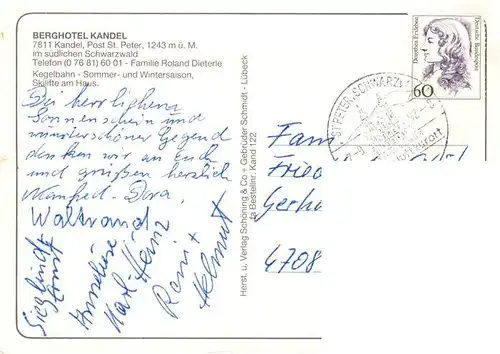 BERGHOTEL KANDEL
7811 Kandel, Post St. Peter, 1243 m ü. M.
im südlichen Schwarzwald
Telefon (0 76 81) 60 01 - Familie Roland Dieterle
Kegelbahn - Sommer- und Wintersaison,
Skilifte am Haus.
Bei herrlichem
Sonnenschein und
wunderschöner Gegend
denken wir an Euch
und grüßen herzlich
Manfred. Dora.
Waltraud
Sieglinde
Ernst
Anneliese
Karl Heinz
Reni +
Helmut
Herst. u. Verlag Schöning & Co + Gebrüder Schmidt - Lübeck
Bestellnr. Kand 122
Dorothea Erxleben
Deutsche Bundespost
60
ST. PETER, SCHWARZW
Fam
Fried
Gerh
4708